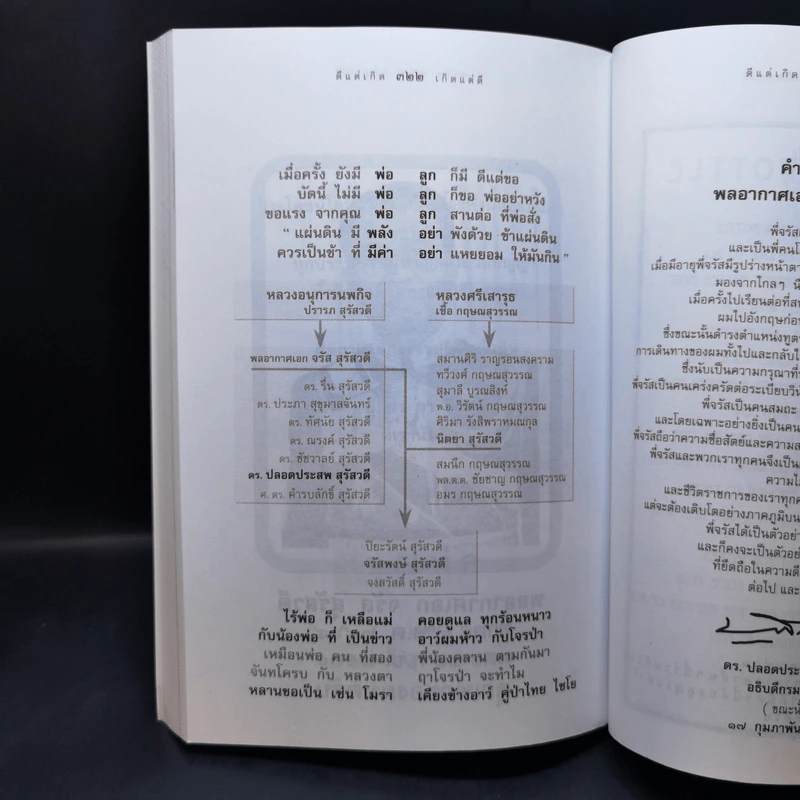 ดีแต่เกิด ๓๒๒ เกิดแต่ดี
เมื่อครั้ง ยังมี พ่อ ลูก ก็มี ดีแต่ขอ
บัดนี้ ไม่มี พ่อ ลูก ก็ขอ พ่ออย่าหวัง
ขอแรง จากคุณ พ่อ ลูก สานต่อ ที่พ่อสั่ง
" แผ่นดิน มี พลัง อย่า พังด้วย ข้าแผ่นดิน
ควรเป็นข้า ที่ มีค่า อย่า แหยยอม ให้มันกิน "
หลวงอนุการนพกิจ
ปรารภ สุรัสวดี
หลวงศรีเสารุธ
เชื้อ กฤษณสุวรรณ
พลอากาศเอก จรัส สุรัสวดี
ดร. รื่น สุรัสวดี
ดร. ประภา สุขุมาลจันทร์
ดร. ทัศนัย สุรัสวดี
ดร. ณรงค์ สุรัสวดี
ดร. ชัชวาลย์ สุรัสวดี
ดร. ปลอดประสพ สุรัสวดี
ศ. ดร. คำรบลักขิ์ สุรัสวดี
สมานศิริ ราญรอนสงคราม
ทวีวงศ์ กฤษณสุวรรณ
สุมาลี บูรณสิงห์
พ.อ. วิรัตน์ กฤษณสุวรรณ
ศิริมา รังสิพราหมณกุล
นิตยา สุรัสวดี
สมนึก กฤษณสุวรรณ
พล.ต.ต. ชัยชาญ กฤษณสุวรรณ
อมร กฤษณสุวรรณ
ปิยะรัตน์ สุรัสวดี
จรัสพงษ์ สุรัสวดี
จงสวัสดิ์ สุรัสวดี
ไร้พ่อ ก็ เหลือแม่ คอยดูแล ทุกร้อนหนาว
กับน้องพ่อ ที่ เป็นข่าว อาว์ผมห้าว กับโจรป่า
เหมือนพ่อ คน ที่สอง พี่น้องคลาน ตามกันมา
จันทโครบ กับ หลวงตา ฤาโจรป่า จะทำไม
หลานขอเป็น เช่น โมรา เคียงข้างอาว์ คู่ป่าไทย ไชโย
ดีแต่เกิด
คำ
พลอากาศเอ
พี่จรัส
และเป็นพี่คนโ
เมื่อมีอายุพี่จรัสมีรูปร่างหน้าตา
มองจากไกลๆ นี
เมื่อครั้งไปเรียนต่อที่ส
ผมไปอังกฤษก่อน
ซึ่งขณะนั้นดำรงตำแหน่งทูต
การเดินทางของผมทั้งไปและกลับใ
ซึ่งนับเป็นความกรุณาที่
พี่จรัสเป็นคนเคร่งครัดต่อระเบียบวิน
พี่จรัสเป็นคนสมถะ
และโดยเฉพาะอย่างยิ่งเป็นคน
พี่จรัสถือว่าความซื่อสัตย์และความส
พี่จรัสและพวกเราทุกคนจึงเป็น
ความไ
และชีวิตราชการของเราทุก
แต่จะต้องเติบโตอย่างภาคภูมิบน
พี่จรัสได้เป็นตัวอย่า
และก็คงจะเป็นตัวอย่
ที่ยึดถือในความดี
ต่อไป และ
ดร. ปลอดประ
อธิบดีกรม
( ขณะนั้
๑๗ กุมภาพัน